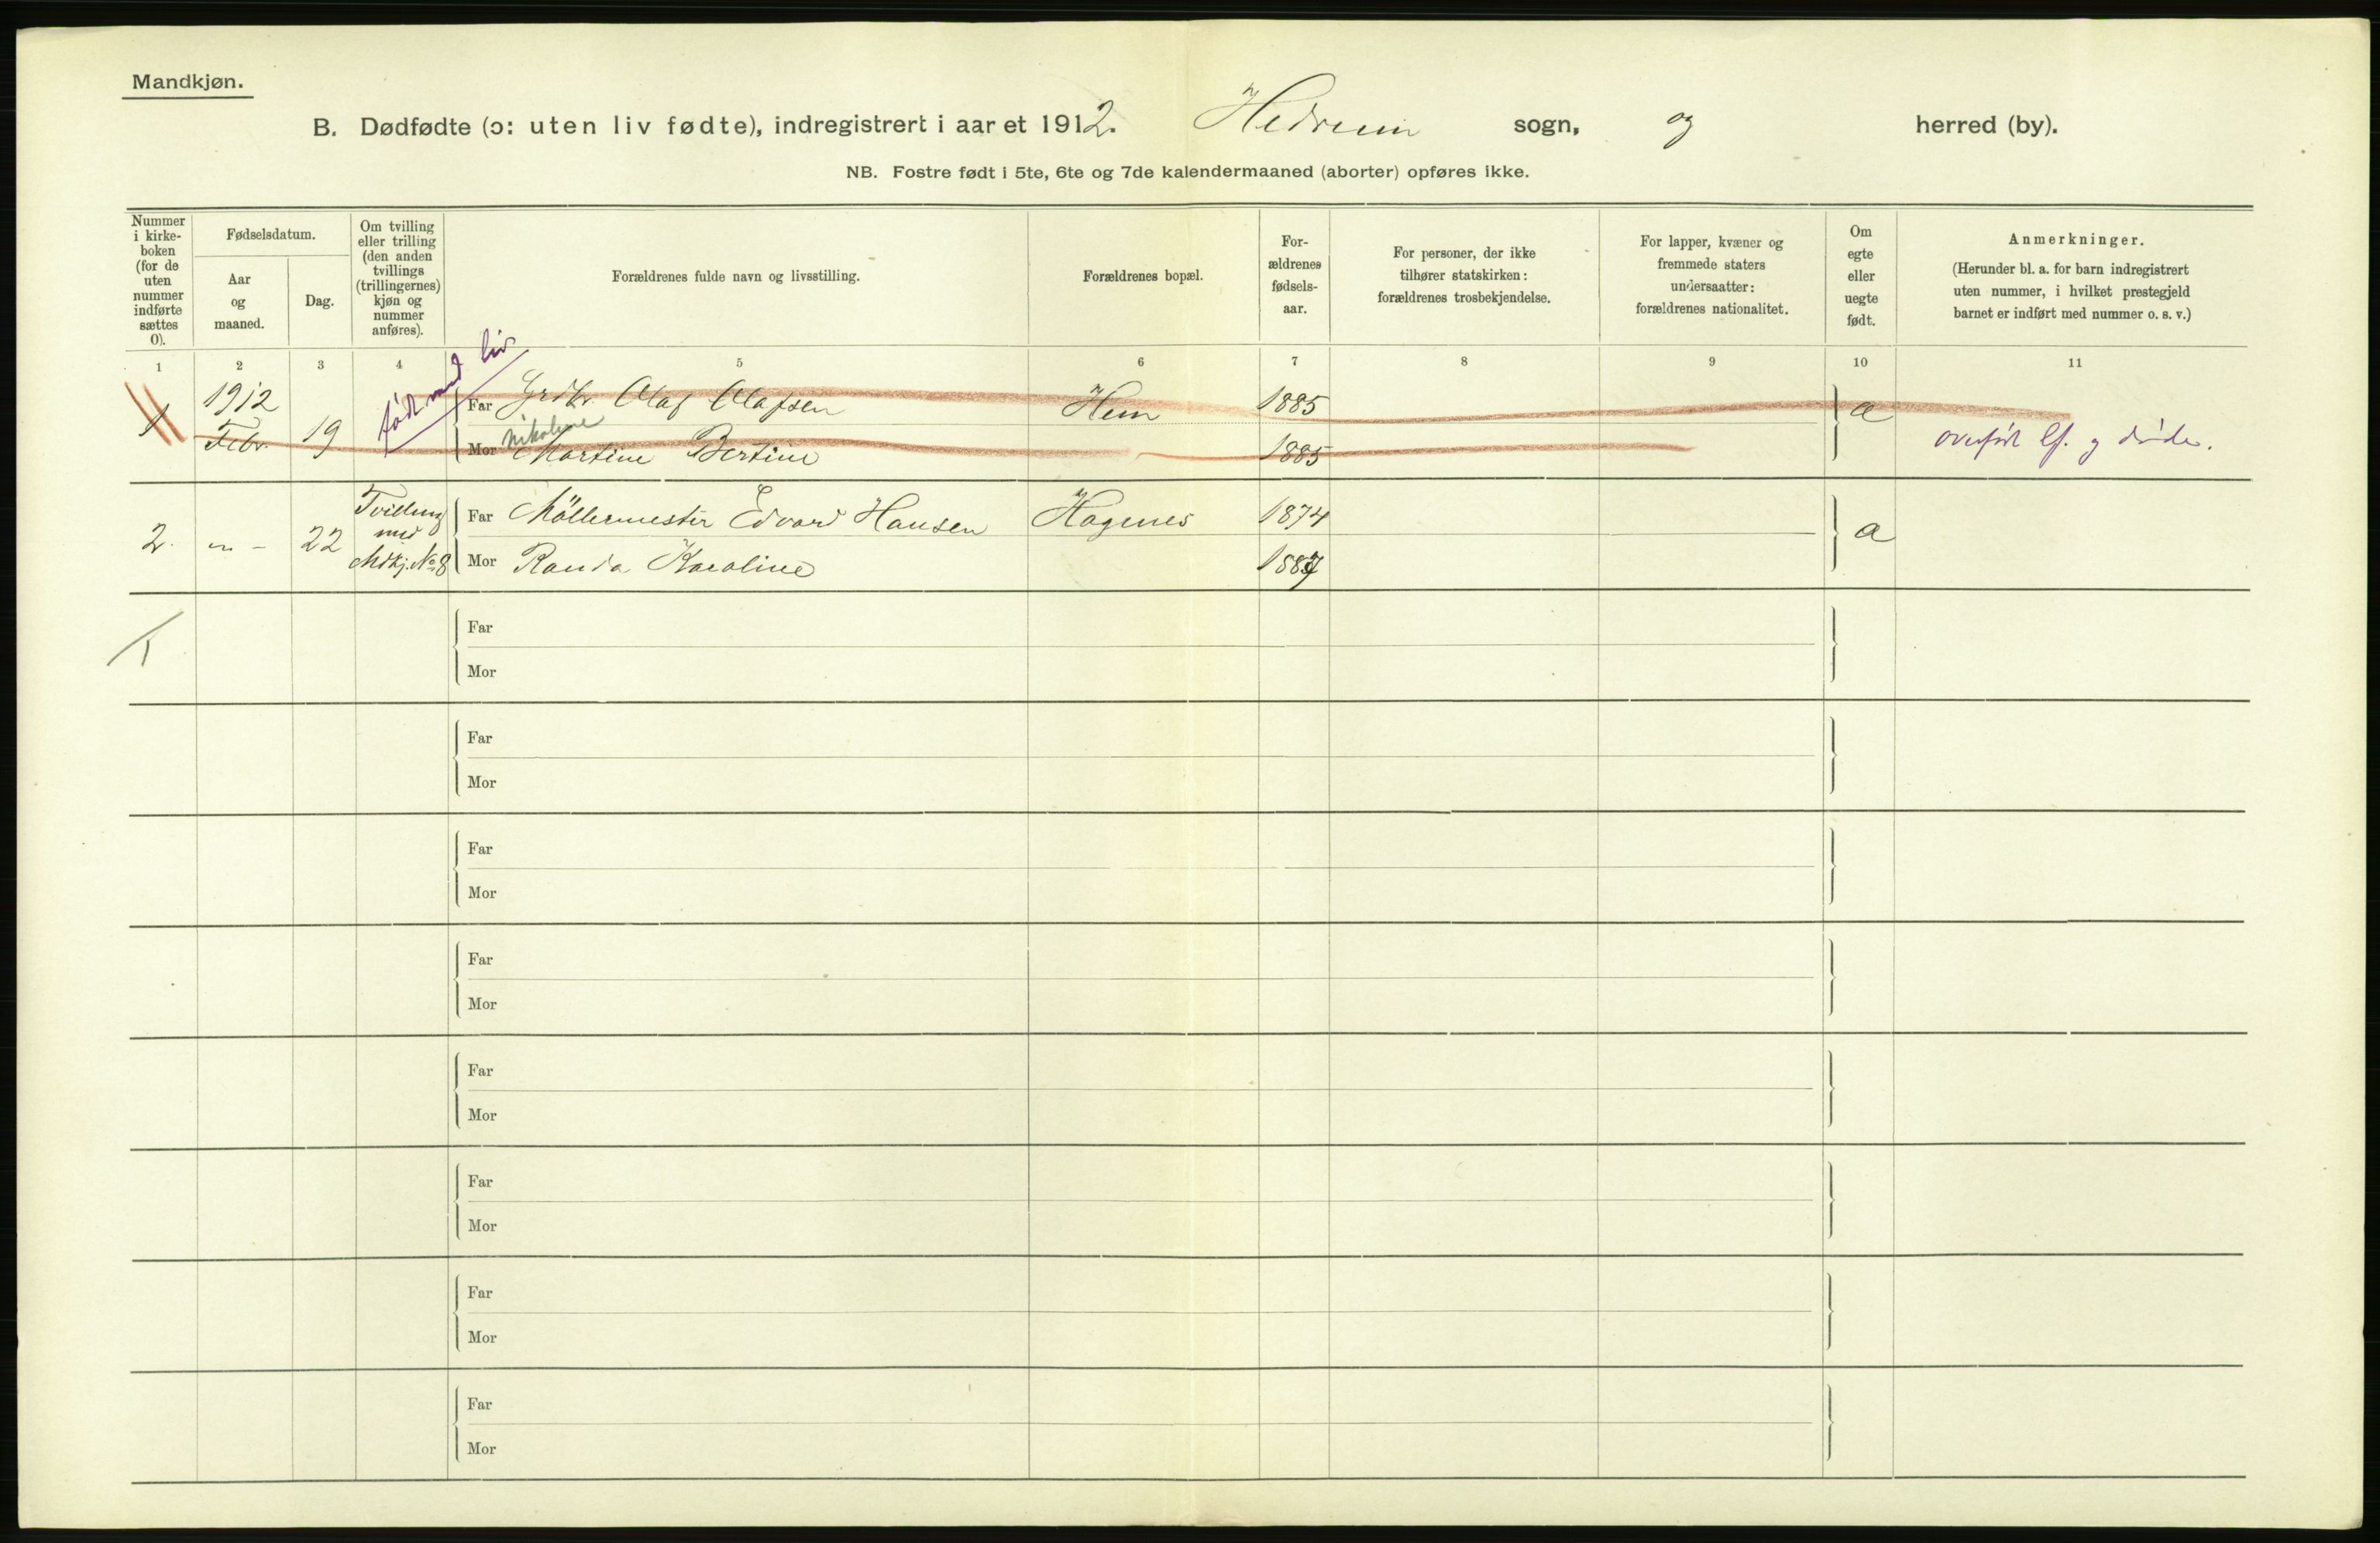 Mandkjøn.
B. Dødfødte (ɔ: uten liv fødte), indregistrert i aaret 1912. Hedrum sogn, og herred (by).
NB. Fostre født i 5te, 6te og 7de kalendermaaned (aborter) opføres ikke.
Nummer
i kirke-
boken
(for de
uten
nummer
indførte
sættes
0).
Fødselsdatum.
Aar
og
maaned.
Dag.
Om tvilling
eller trilling
(den anden
tvillings
(trillingernes)
kjøn og
nummer
anføres).
Forældrenes fulde navn og livsstilling.
Forældrenes bopæl.
For-
ældrenes
fødsels-
aar.
For personer, der ikke
tilhører statskirken:
forældrenes trosbekjendelse.
For lapper, kvæner og
fremmede staters
undersaatter:
forældrenes nationalitet.
Om
egte
eller
uegte
født.
Anmerkninger.
(Herunder bl. a. for barn indregistrert
uten nummer, i hvilket prestegjeld
barnet er indført med nummer o. s. v.)
1 2 3 4 5 6 7 8 9 10 11
født med liv
1 1912 Febr. 19
Far Grdbr. Olaf Olafsen Hem 1885 a
Nikoline
Mor Martine Bertine 1885
overført lf. og døde.
2. -"- 22
Tvilling
med
Mdkj. No 8
Far Möllermester Edvard Hansen Hagenes 1874 a
Mor Randa Karoline 1887
Far
Mor
Far
Mor
Far
Mor
Far
Mor
Far
Mor
Far
Mor
Far
Mor
Far
Mor